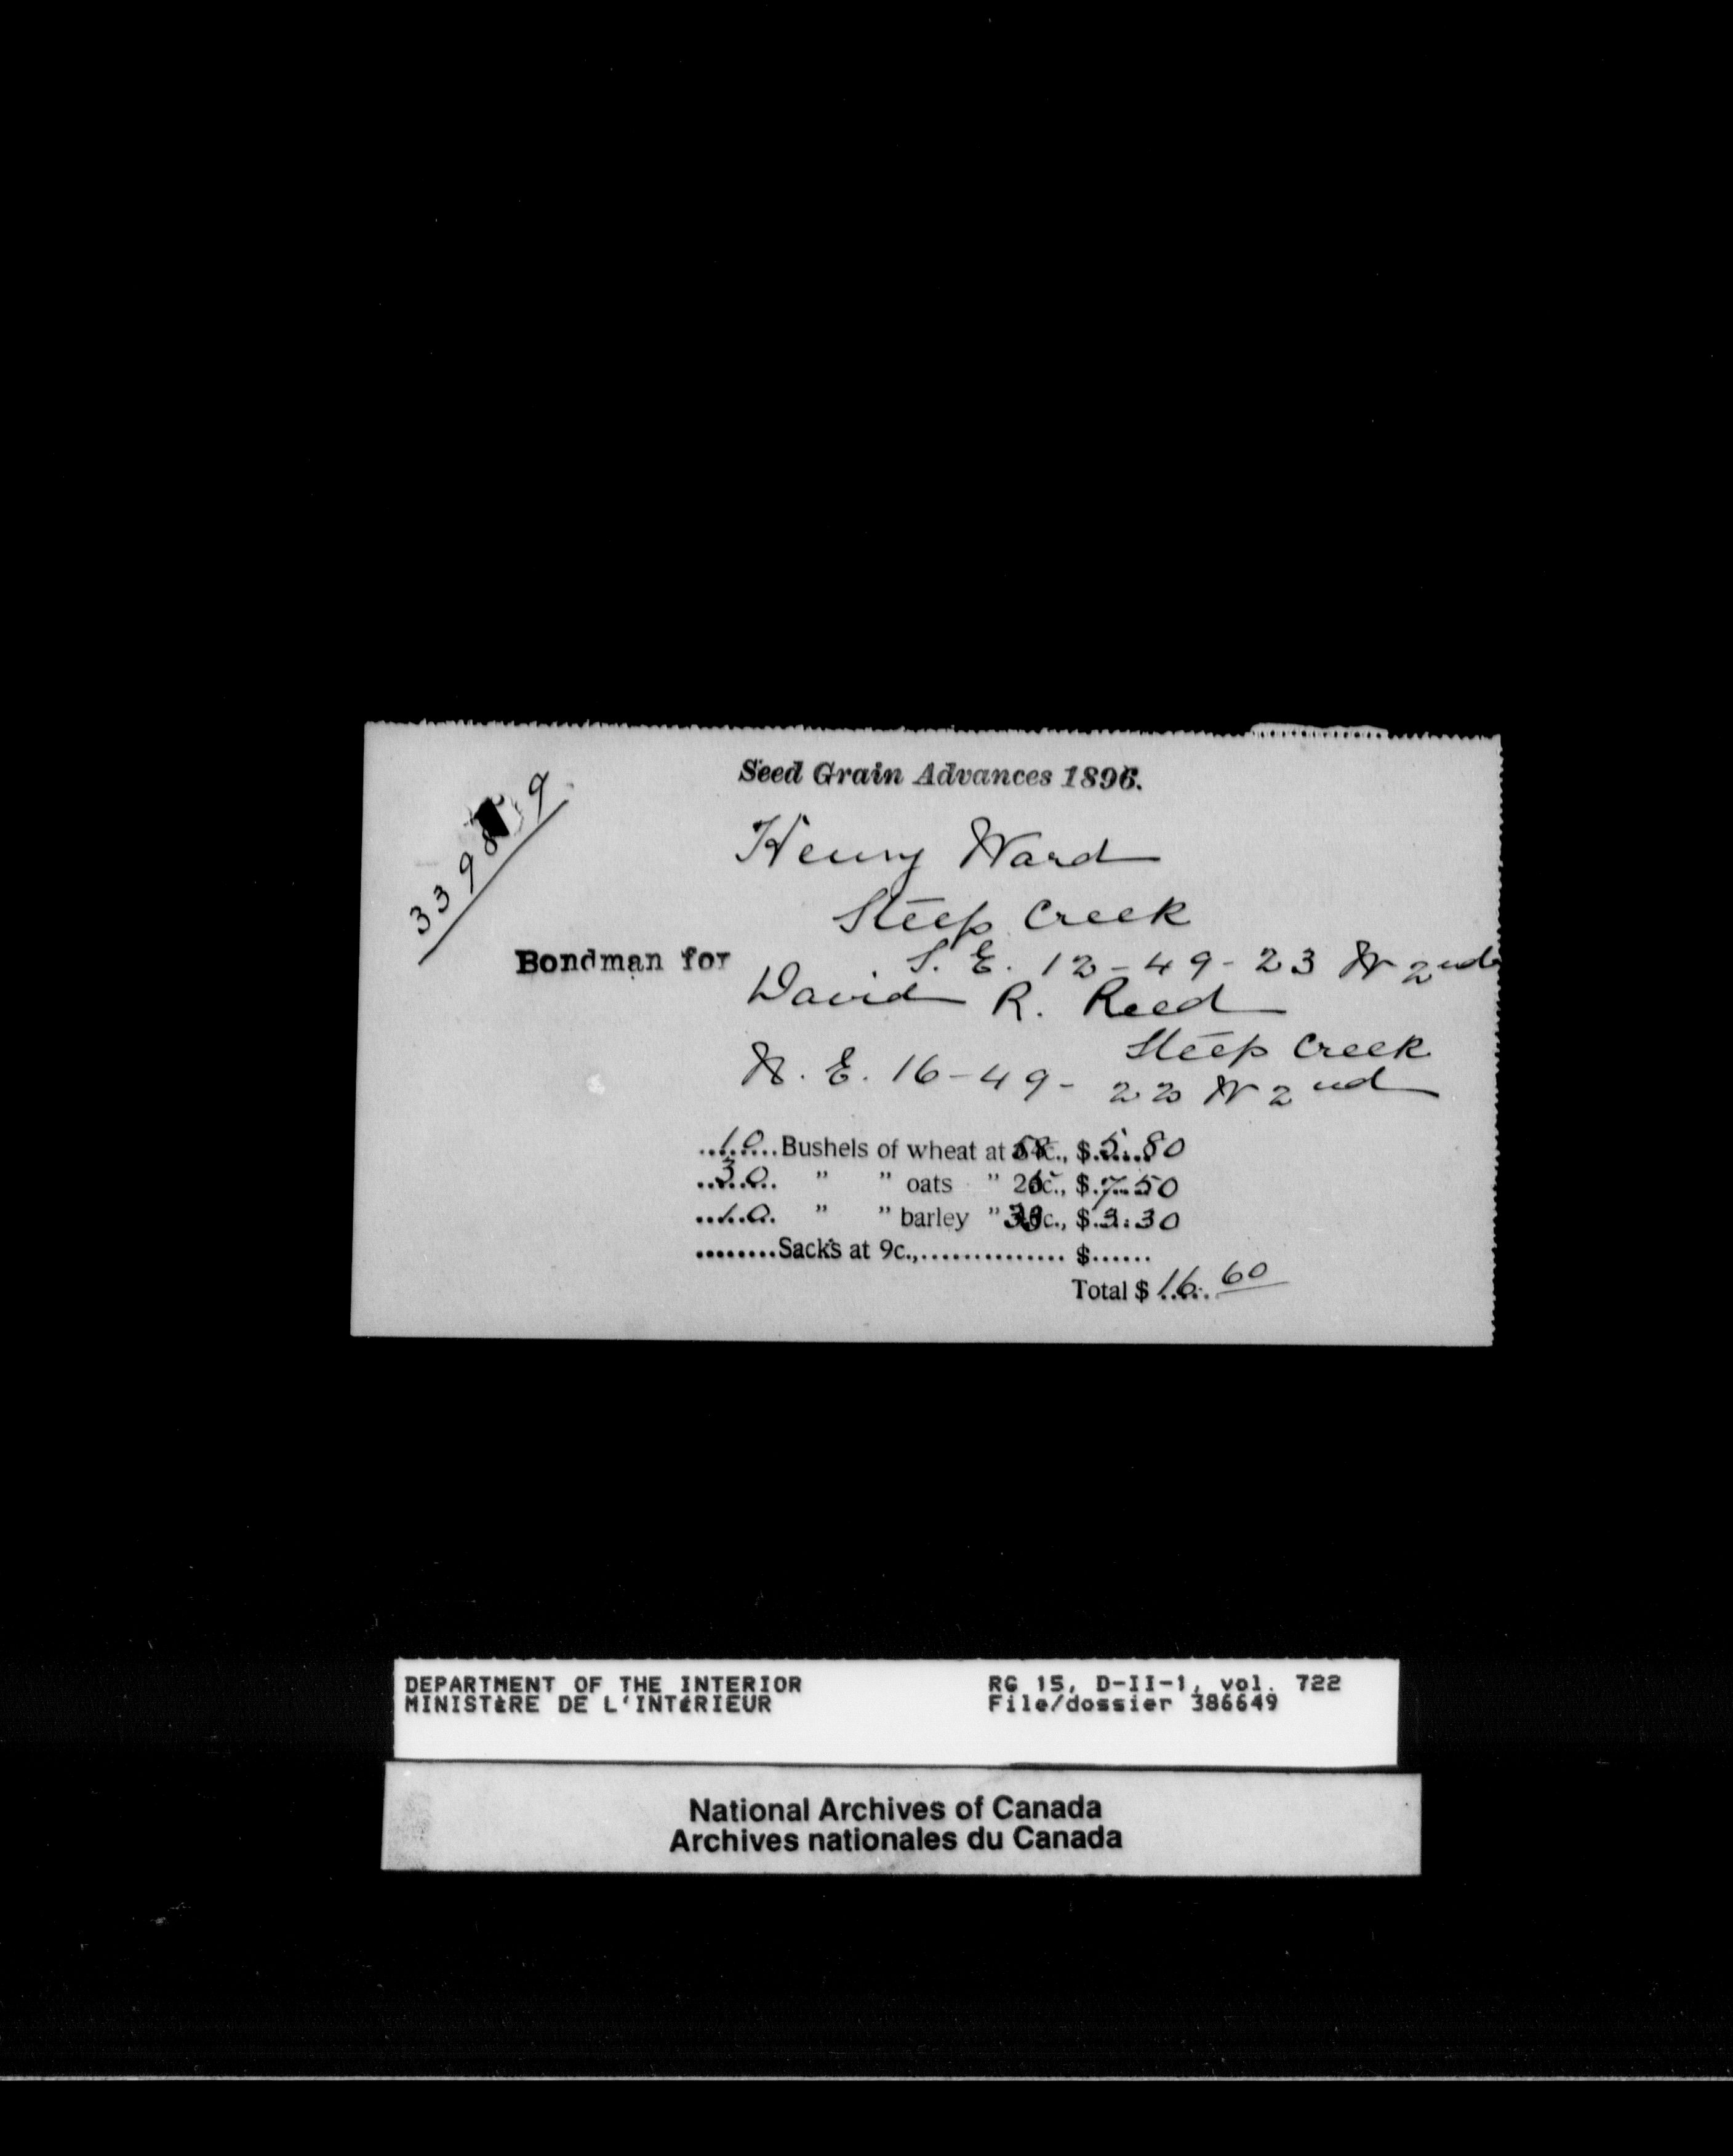 Seed Grain Advances 1896.
Henry Ward
Steep Creek
S. E. 12-49-23 W 2nd
Bondman for
David R. Reed
Steep Creek
N. E. 16-49-22 W 2nd
10 Bushels of wheat at 58c., $ 5.80
30 " " oats " 25c., $ 7.50
10 " " barley " 33c., $ 3.30
Sacks at 9c., $
Total $ 16.60
DEPARTMENT OF THE INTERIOR RG 15, D-II-1, vol. 722
MINISTÈRE DE L'INTÉRIEUR File/dossier 386649
National Archives of Canada
Archives nationales du Canada